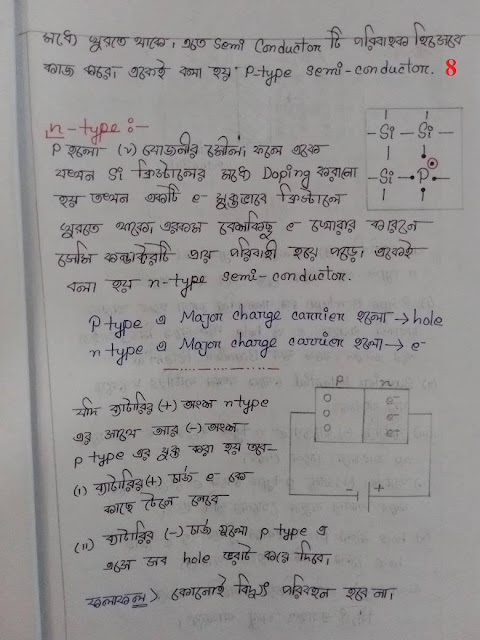 মধ্যে ঘুরতে থাকে, এতে Semi Conductor টি পরিবাহক হিসেবে
কাজ করে। একেই বলা হয় P-type semi-conductor. 8
n-type :-
P হলো (V) যোজনীর মৌল। ফলে একে
যখন Si ক্রিস্টালের মধ্যে Doping করানো
হয় তখন একটি e- মুক্তভাবে ক্রিস্টালে
ঘুরতে থাকে। এরকম বেশকিছু e ঘোরার কারনে
সেমি কন্ডাক্টরটি প্রায় পরিবাহী হয়ে পড়ে। একেই
বলা হয় n-type semi-conductor.
-Si-Si-
-Si-P-
P type এ Major charge carrier হলো → hole
n type এ Major charge carrier হলো → e-
যদি ব্যাটারির (+) অংশ n type
এর সাথে আর (-) অংশ
P type এর যুক্ত করা হয় তবে-
(i) ব্যাটারির (+) চার্জ e কে
কাছে টেনে নেবে
(ii) ব্যাটারির (-) চার্জ গুলো P type এ
এসে সব hole ভরাট করে দিবে।
ফলাফল > কোনোই বিদ্যুৎ পরিবহন হবে না।
P n
o e-
o e-
o e-
- +